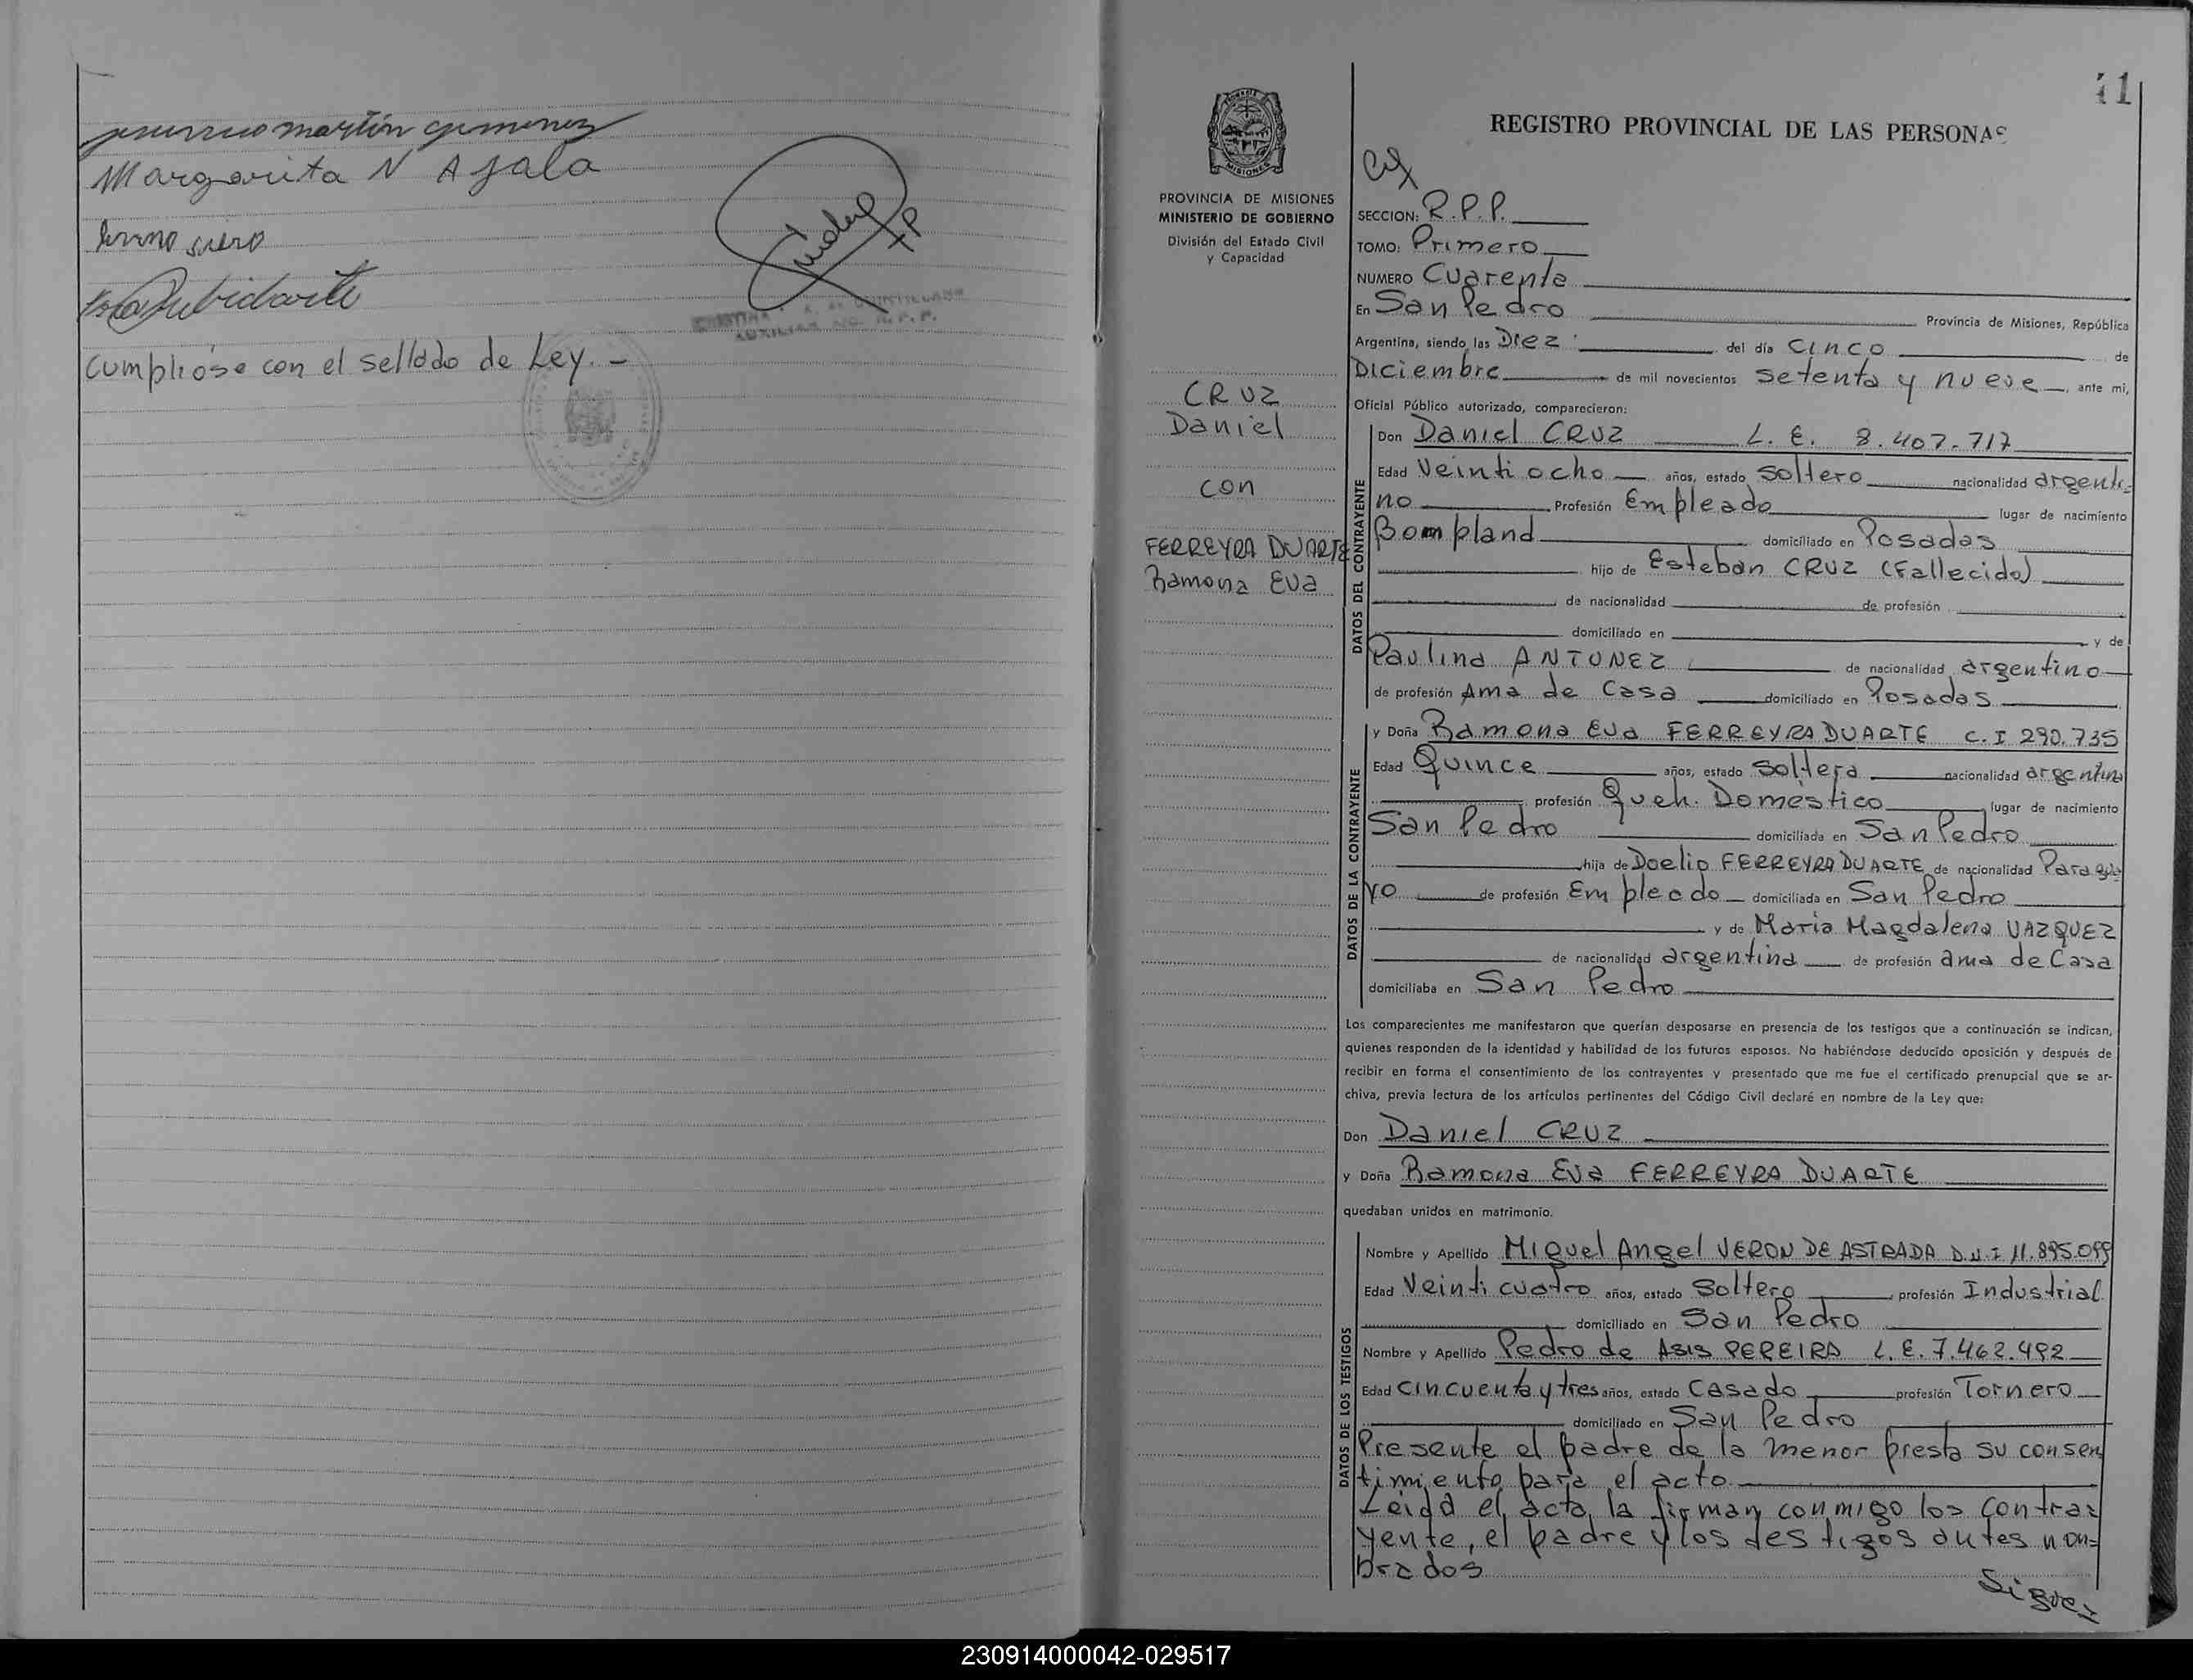 martín gimenez
Margarita N Ayala
Cumplióse con el sellado de Ley. -
41
REGISTRO PROVINCIAL DE LAS PERSONAS
MISIONES
PROVINCIA DE MISIONES
MINISTERIO DE GOBIERNO
División del Estado Civil
y Capacidad
SECCION: R.P.P.
TOMO: Primero
NUMERO Cuarenta
En San Pedro Provincia de Misiones, República
Argentina, siendo las Diez del día CINCO de
Diciembre de mil novecientos setenta y nueve, ante mi,
Oficial Público autorizado, comparecieron:
CRUZ
Daniel
con
FERREYRA DUARTE
Ramona Eva
DATOS DEL CONTRAYENTE
Don Daniel CRUZ L. E. 8.407.717
Edad Veinti ocho años, estado soltero nacionalidad argenti-
no Profesión Empleado lugar de nacimiento
Bompland domiciliado en Posadas
hijo de Esteban CRUZ (Fallecido)
de nacionalidad de profesión
domiciliado en y de
Paulina ANTUNEZ de nacionalidad argentino
de profesión Ama de Casa domiciliado en Posadas
DATOS DE LA CONTRAYENTE
y Doña Ramona Eva FERREYRA DUARTE C.I 290.735
Edad Quince años, estado soltera nacionalidad argentina
profesión Queh. Doméstico lugar de nacimiento
San Pedro domiciliada en San Pedro
hija de Doelio FERREYRA DUARTE de nacionalidad Paragua
yo de profesión Empleado domiciliada en San Pedro
y de Maria Magdalena VAZQUEZ
de nacionalidad argentina de profesión ama de Casa
domiciliaba en San Pedro
Los comparecientes me manifestaron que querían desposarse en presencia de los testigos que a continuación se indican,
quienes responden de la identidad y habilidad de los futuros esposos. No habiéndose deducido oposición y después de
recibir en forma el consentimiento de los contrayentes y presentado que me fue el certificado prenupcial que se ar-
chiva, previa lectura de los artículos pertinentes del Código Civil declaré en nombre de la Ley que:
Don Daniel CRUZ
y Doña Ramona Eva FERREYRA DUARTE
quedaban unidos en matrimonio.
DATOS DE LOS TESTIGOS
Nombre y Apellido Miguel Angel VERON DE ASTRADA D.N.I 11.895.099
Edad Veinti cuatro años, estado Soltero profesión Industrial
domiciliado en San Pedro
Nombre y Apellido Pedro de ASIS PEREIRA L.E. 7.462.492
Edad cincuenta y tres años, estado casado profesión Tornero
domiciliado en San Pedro
Presente el padre de la menor presta su consen
timiento para el acto
Leida el acta, la firman conmigo los contra=
yente, el padre y los testigos antes nom=
brados
Sigue=
230914000042-029517